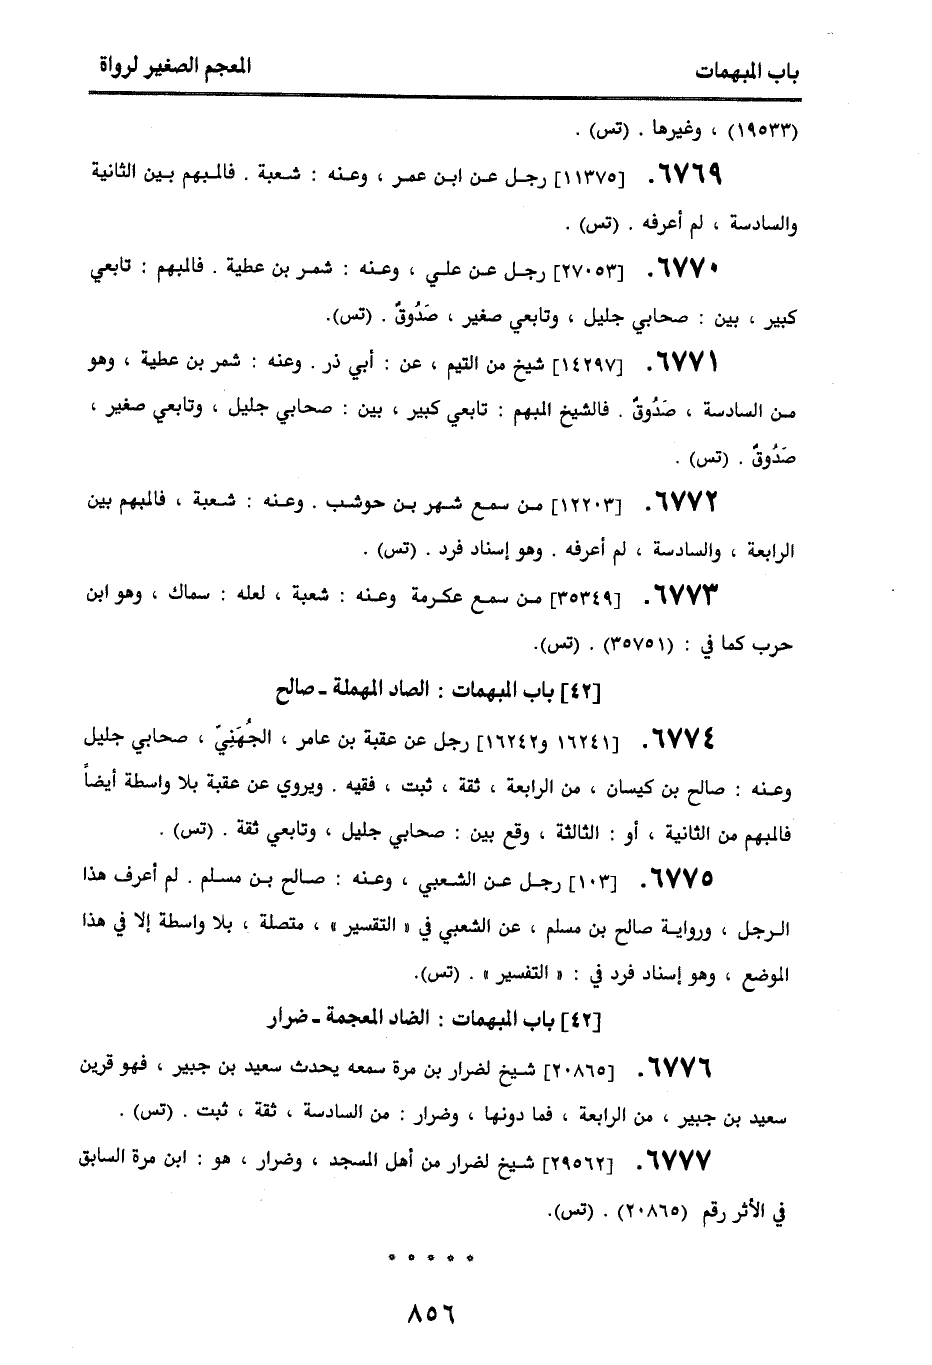 باب المبهمات
المعجم الصغير لرواة
(١٩٥٣٣) ، وغيرها . (تس) .
٦٧٦٩. [١١٣٧٥] رجل عن ابن عمر ، وعنه : شعبة . فالمبهم بين الثانية
والسادسة ، لم أعرفه . (تس) .
٦٧٧٠. [٢٧٠٥٣] رجل عن علي ، وعنه : شمر بن عطية . فالمبهم : تابعي
كبير ، بين : صحابي جليل ، وتابعي صغير ، صَدُوقٌ . (تس).
٦٧٧١. [١٤٢٩٧] شيخ من التيم ، عن : أبي ذر . وعنه : شمر بن عطية ، وهو
من السادسة ، صَدُوقٌ . فالشيخ المبهم : تابعي كبير ، بين : صحابي جليل ، وتابعي صغير ،
صَدُوقٌ . (تس) .
٦٧٧٢. [١٢٢٠٣] من سمع شهر بن حوشب . وعنه : شعبة ، فالمبهم بين
الرابعة ، والسادسة ، لم أعرفه . وهو إسناد فرد . (تس) .
٦٧٧٣. [٣٥٣٤٩] من سمع عكرمة وعنه : شعبة ، لعله : سماك ، وهو ابن
حرب كما في : (٣٥٧٥١) . (تس).
[٤٢] باب المبهمات : الصاد المهملة ـ صالح
٦٧٧٤. [١٦٢٤١ و١٦٢٤٢] رجل عن عقبة بن عامر ، الجُهَنِيّ ، صحابي جليل
وعنه : صالح بن كيسان ، من الرابعة ، ثقة ، ثبت ، فقيه . ويروي عن عقبة بلا واسطة أيضاً
فالمبهم من الثانية ، أو : الثالثة ، وقع بين : صحابي جليل ، وتابعي ثقة . (تس) .
٦٧٧٥. [١٠٣] رجل عن الشعبي ، وعنه : صالح بن مسلم . لم أعرف هذا
الرجل ، ورواية صالح بن مسلم ، عن الشعبي في « التفسير » ، متصلة ، بلا واسطة إلا في هذا
الموضع ، وهو إسناد فرد في : « التفسير » . (تس).
[٤٢] باب المبهمات : الضاد المعجمة ـ ضرار
٦٧٧٦. [٢٠٨٦٥] شيخ لضرار بن مرة سمعه يحدث سعيد بن جبير ، فهو قرين
سعيد بن جبير ، من الرابعة ، فما دونها ، وضرار : من السادسة ، ثقة ، ثبت . (تس) .
٦٧٧٧. [٢٩٥٦٢] شيخ لضرار من أهل المسجد ، وضرار ، هو : ابن مرة السابق
في الأثر رقم (٢٠٨٦٥) . (تس).
* * * * *
٨٥٦